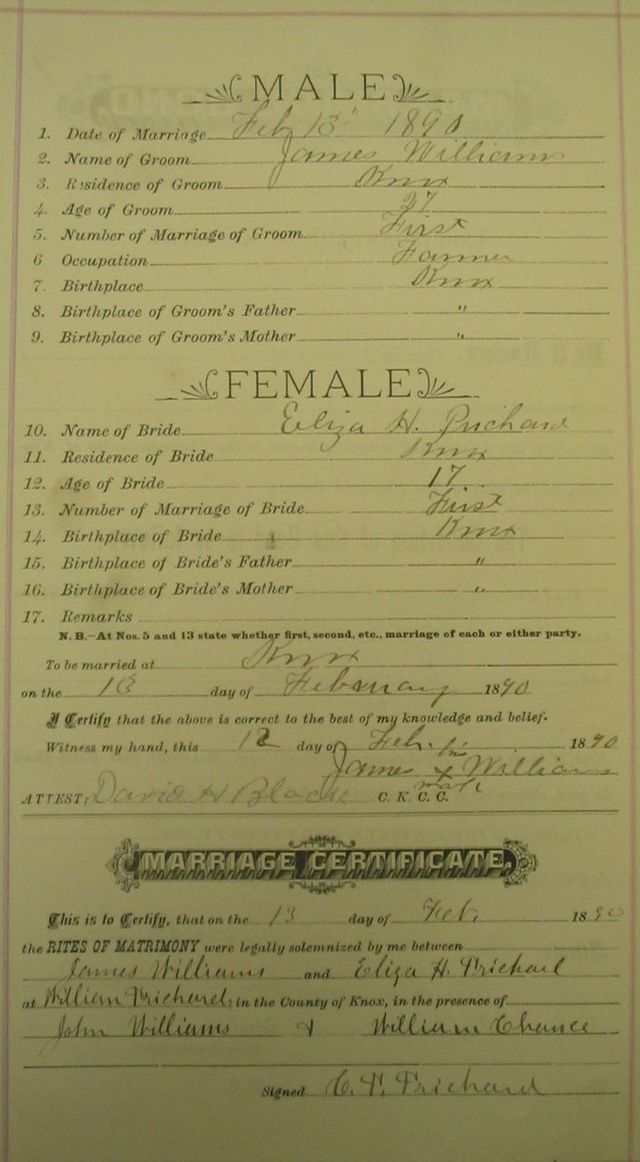 MALE
1. Date of Marriage Feb 13" 1890
2. Name of Groom James Williams
3. Residence of Groom Knox
4. Age of Groom 27
5. Number of Marriage of Groom First
6 Occupation Farmer
7. Birthplace Knox
8. Birthplace of Groom's Father "
9. Birthplace of Groom's Mother "
FEMALE
10. Name of Bride Eliza H. Prichard
11. Residence of Bride Knox
12. Age of Bride 17
13. Number of Marriage of Bride First
14. Birthplace of Bride Knox
15. Birthplace of Bride's Father "
16. Birthplace of Bride's Mother "
17. Remarks
N. B.—At Nos. 5 and 13 state whether first, second, etc., marriage of each or either party.
To be married at Knox
on the 13 day of February 1890
I Certify that the above is correct to the best of my knowledge and belief.
Witness my hand, this 12 day of Feb. 1890
his
James x Williams
mark
ATTEST: David H Black C. K. C. C.
MARRIAGE CERTIFICATE.
This is to Certify, that on the 13 day of Feb. 1890
the RITES OF MATRIMONY were legally solemnized by me between
James Williams and Eliza H. Prichard
at William Prichards in the County of Knox, in the presence of
John Williams & William Chance
Signed C. P. Prichard